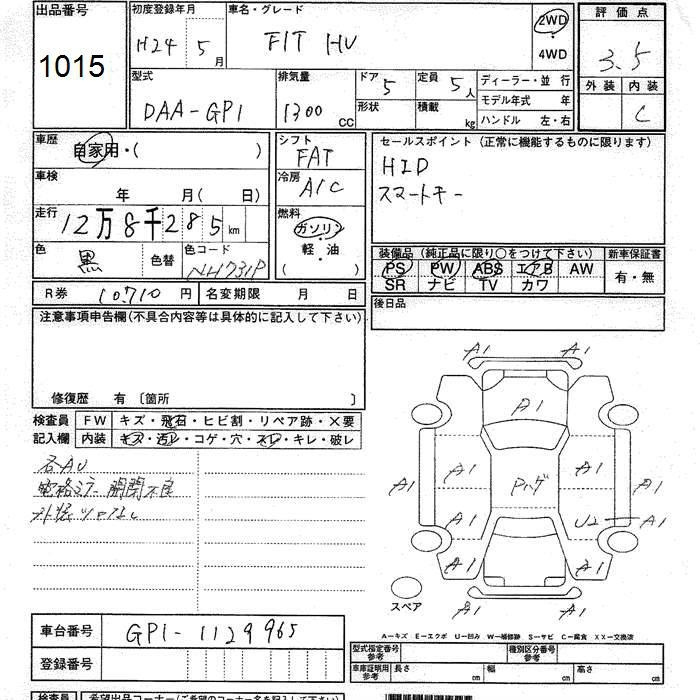 出品番号
1015
初度登録年月
H24 5月
車名・グレード
FIT HV
2WD
・
4WD
評価点
3.5
外装 内装
C
型式
DAA-GP1
排気量
1300 CC
ドア 5
形状
定員 5人
積載 kg
ディーラー・並行
モデル年式 年
ハンドル 左・右
車歴
自家用・( )
車検
年 月( 日)
走行
12万8千285km
色 黒
色替
色コード
NH731P
シフト
FAT
冷房
A/C
燃料
ガソリン
軽・油
( )
セールスポイント (正常に機能するものに限ります)
HID
スマートキー
装備品 (純正品に限り○をつけて下さい)
PS PW ABS エアB AW
SR ナビ TV カワ
新車保証書
有・無
後日品
R券 10,710円
名変期限 月 日
注意事項申告欄(不具合内容等は具体的に記入して下さい)
修復歴 有 〔箇所 〕
検査員
記入欄
FW キズ・飛石・ヒビ割・リペア跡・×要
内装 キズ・汚レ・コゲ・穴・スレ・キレ・破レ
各AU
電格ミラー 開閉不良
A1 A1
A1
A1 A1 Pハゲ A1 A1
A1 U2 A1
A1 A1
A1 A1
スペア
車台番号
GP1-1129965
登録番号
A-キズ E-エクボ U-凹み W-補修跡 S-サビ C-腐食 XX-交換済
型式指定番号
参考
種別区分番号
参考
車庫証明用
参考
長さ cm
幅 cm
高さ cm
検査員
希望出品コーナー(ご希望のコーナー名を記入下さい)